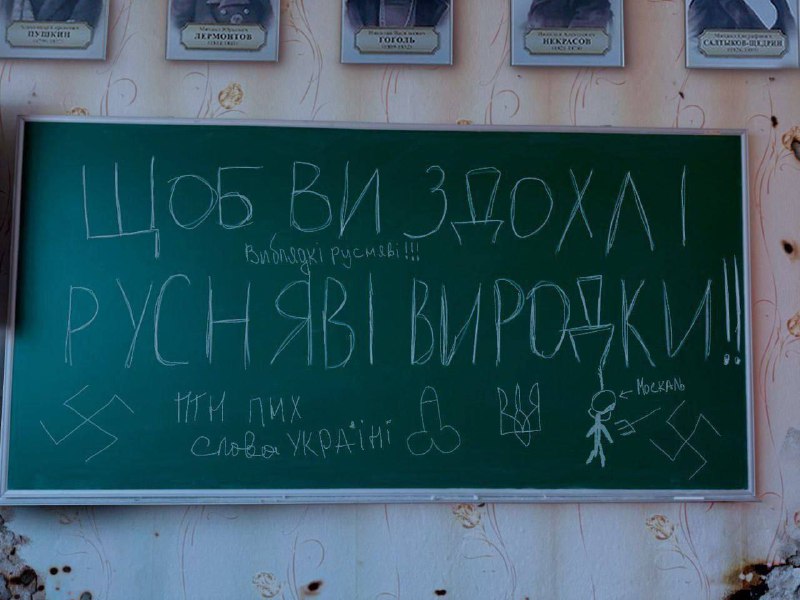 ПУШКИН
ЛЕРМОНТОВ
ГОГОЛЬ
НЕКРАСОВ
САЛТЫКОВ-ЩЕДРИН
ЩОБ ВИ ЗДОХЛІ
Виблядкі русняві!!!
РУСНЯВІ ВИРОДКИ!!
Москаль
ПТН ПИХ
слова УКРАЇНІ